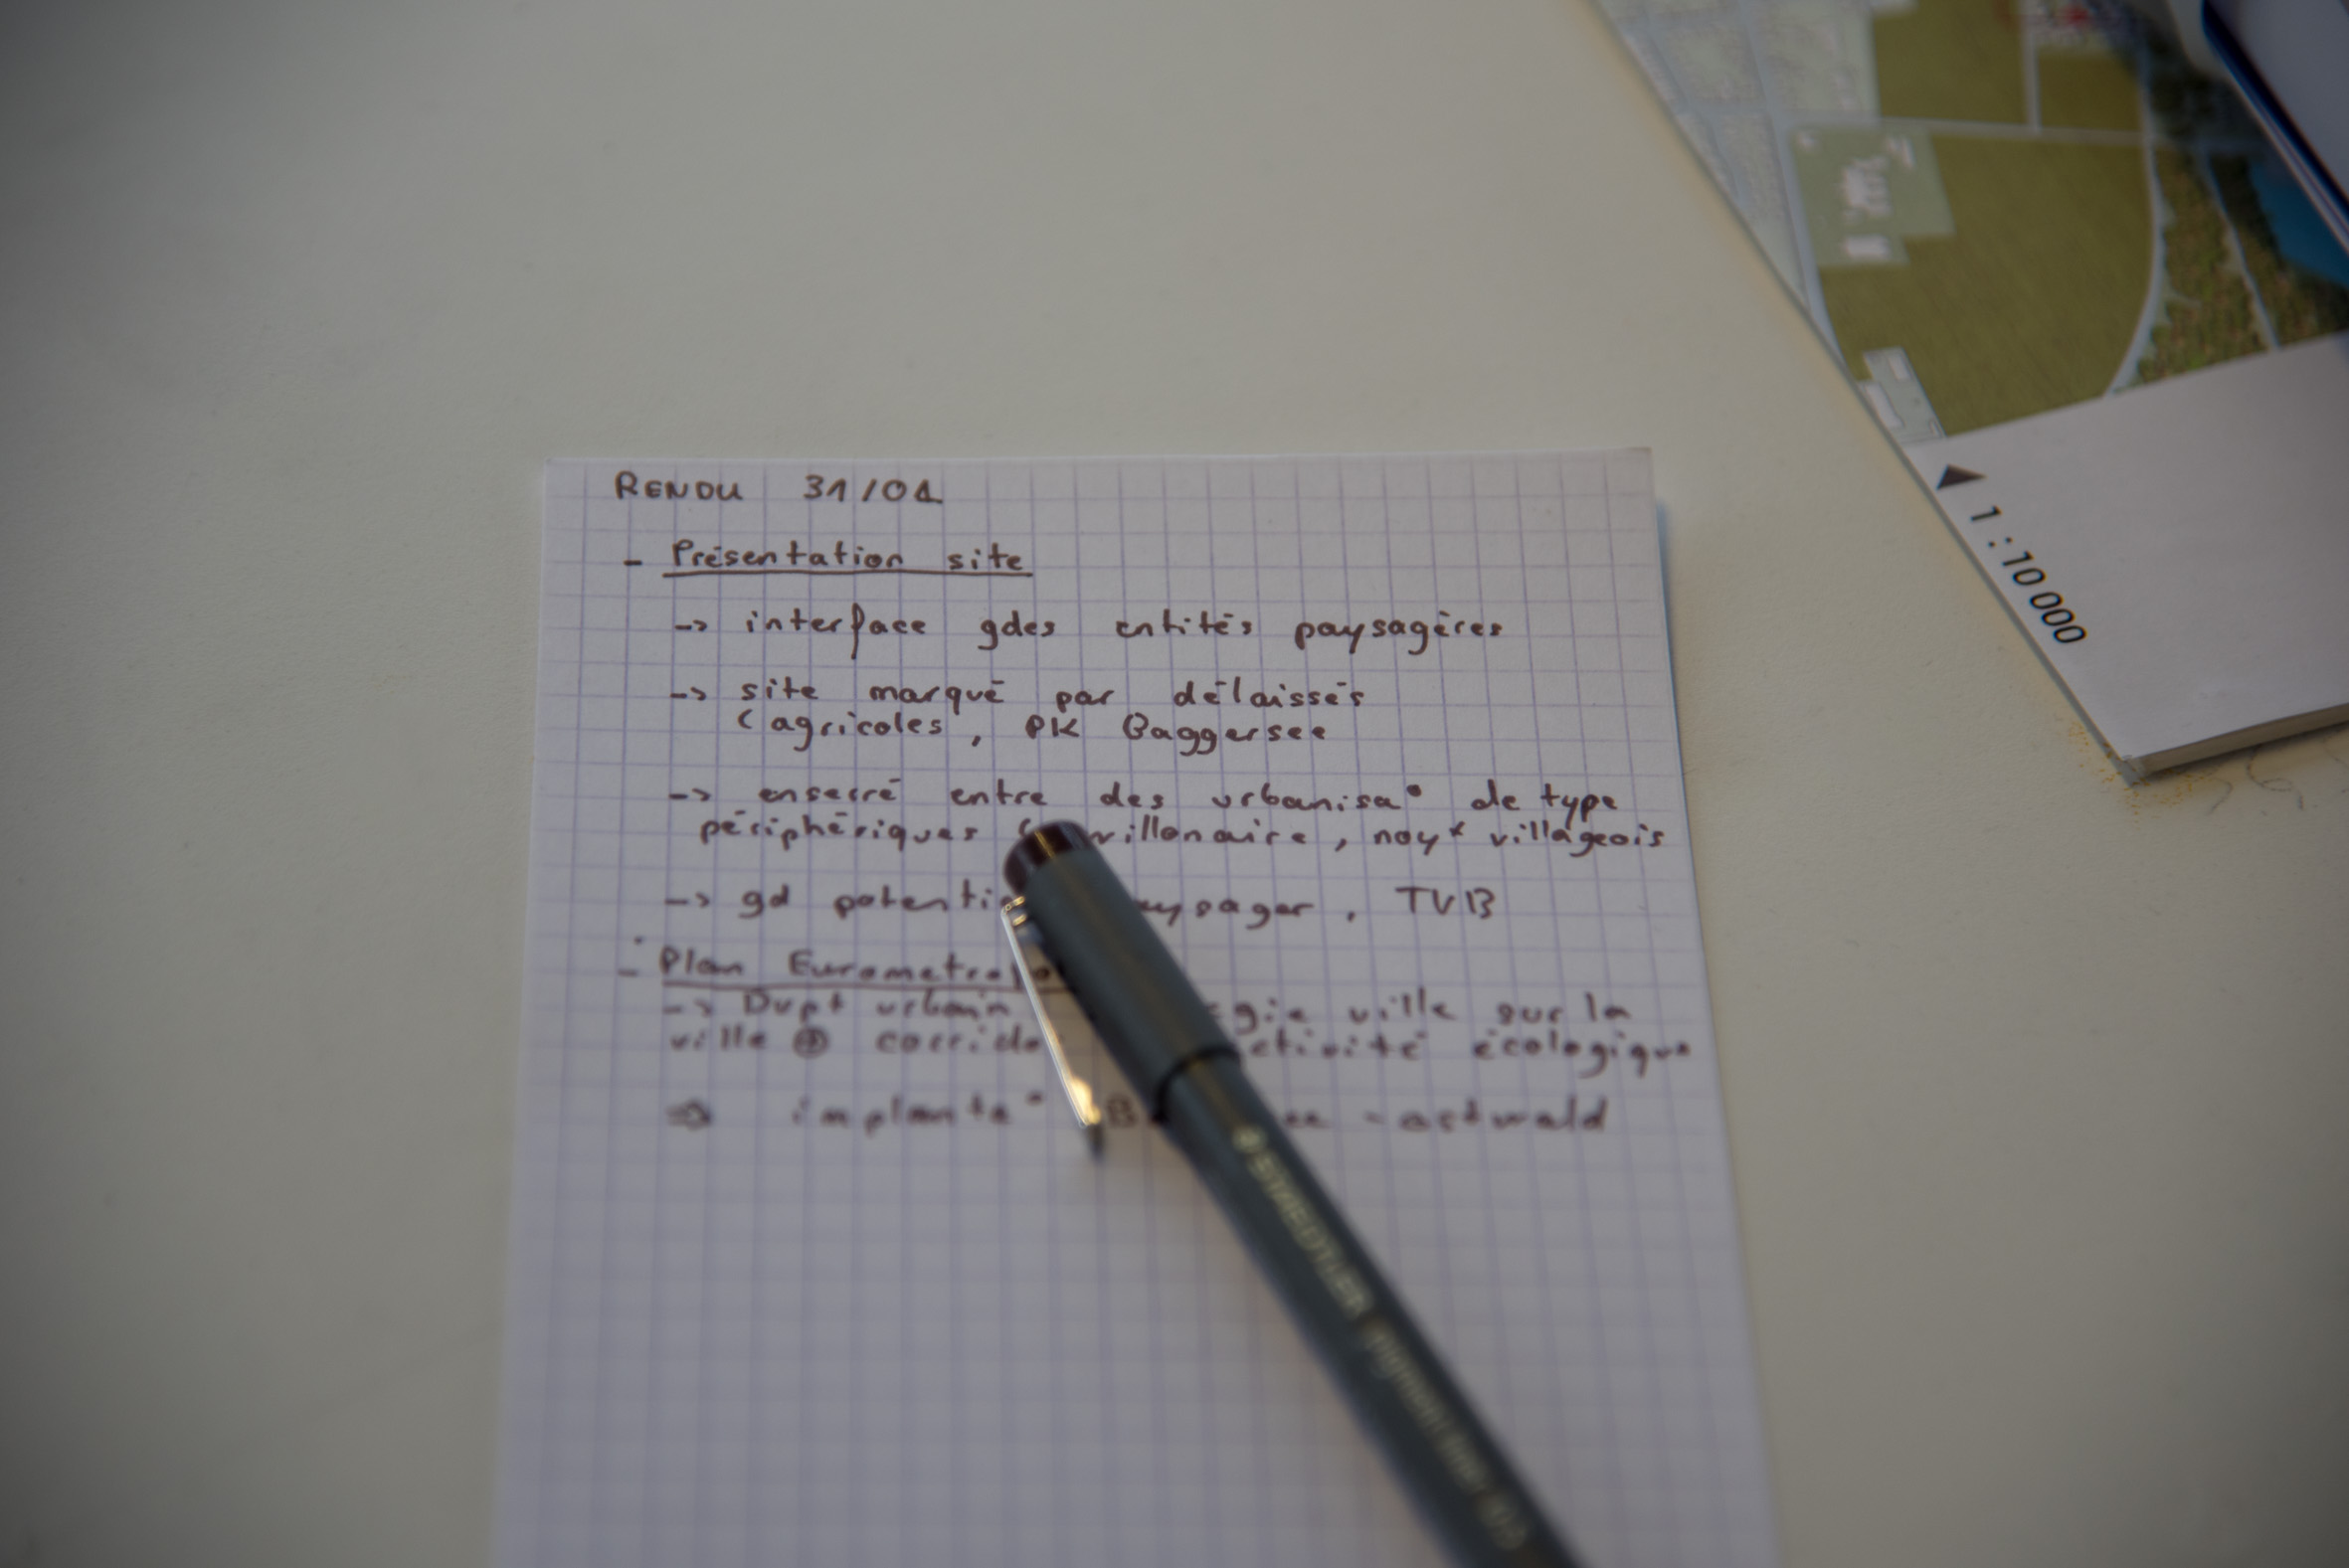 RENDU 31/01
- Présentation site
-> interface gdes entités paysagères
-> site marqué par délaissés
(agricoles, PK Baggersee
-> enserré entre des urbanisa° de type
périphériques villonaire, noyx villageois
-> gd paysager, TVB
- Plan
-> Dvpt urbain ville sur la
ville @ écologique
=> implanta° - ostwald
STAEDTLER pigment liner
1 : 10 000